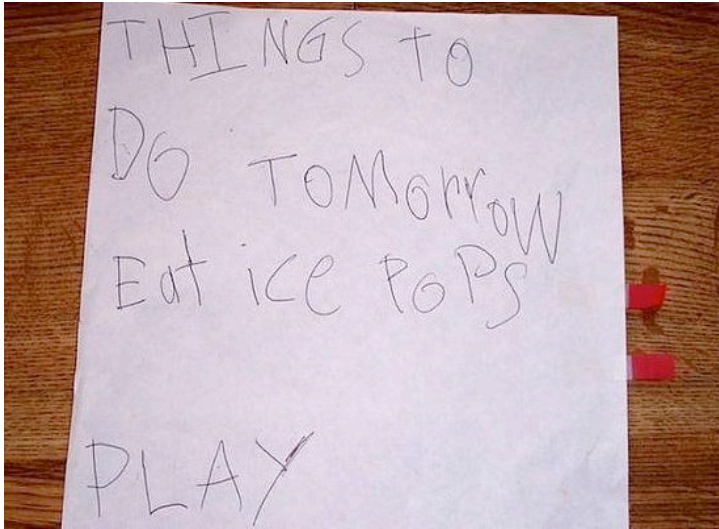 THINGS TO
DO TOMorrOW
Eat ice PoPs
PLAY